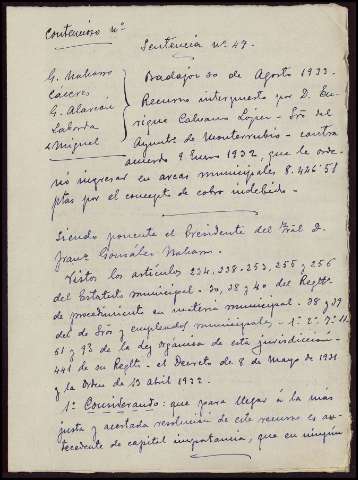 Contencioso nº
Sentencia nº 49.
G. Naharro
Cáceres
G. Alarcón
Laborda
de Miguel
Badajoz 30 de Agosto 1933.
Recurso interpuesto por D. En-
rique Calvano López - Srio del
Ayuntº de Monterrubio - contra
acuerdo 9 Enero 1932, que le orde-
nó ingresar en arcas municipales 8.446'51
ptas por el concepto de cobro indebido.
Siendo ponente el Presidente del Tral D.
Franc González Naharro.
Vistos los artículos 234. 238. 253, 255 y 256
del Estatuto municipal - 30, 38 y 40 del Reglto
de procedimiento en materia municipal - 38 y 39
del de Srios y empleados municipales - 1º 2º
51 y 93 de la ley orgánica de esta jurisdicción -
441 de su Reglto - el Decreto de 8 de Mayo de 1931
y la Orden de 13 abril 1932.
1º Considerando: que para llegar á la más
justa y acertada resolución de este recurso es an-
tecedente de capital importancia, que en ningún